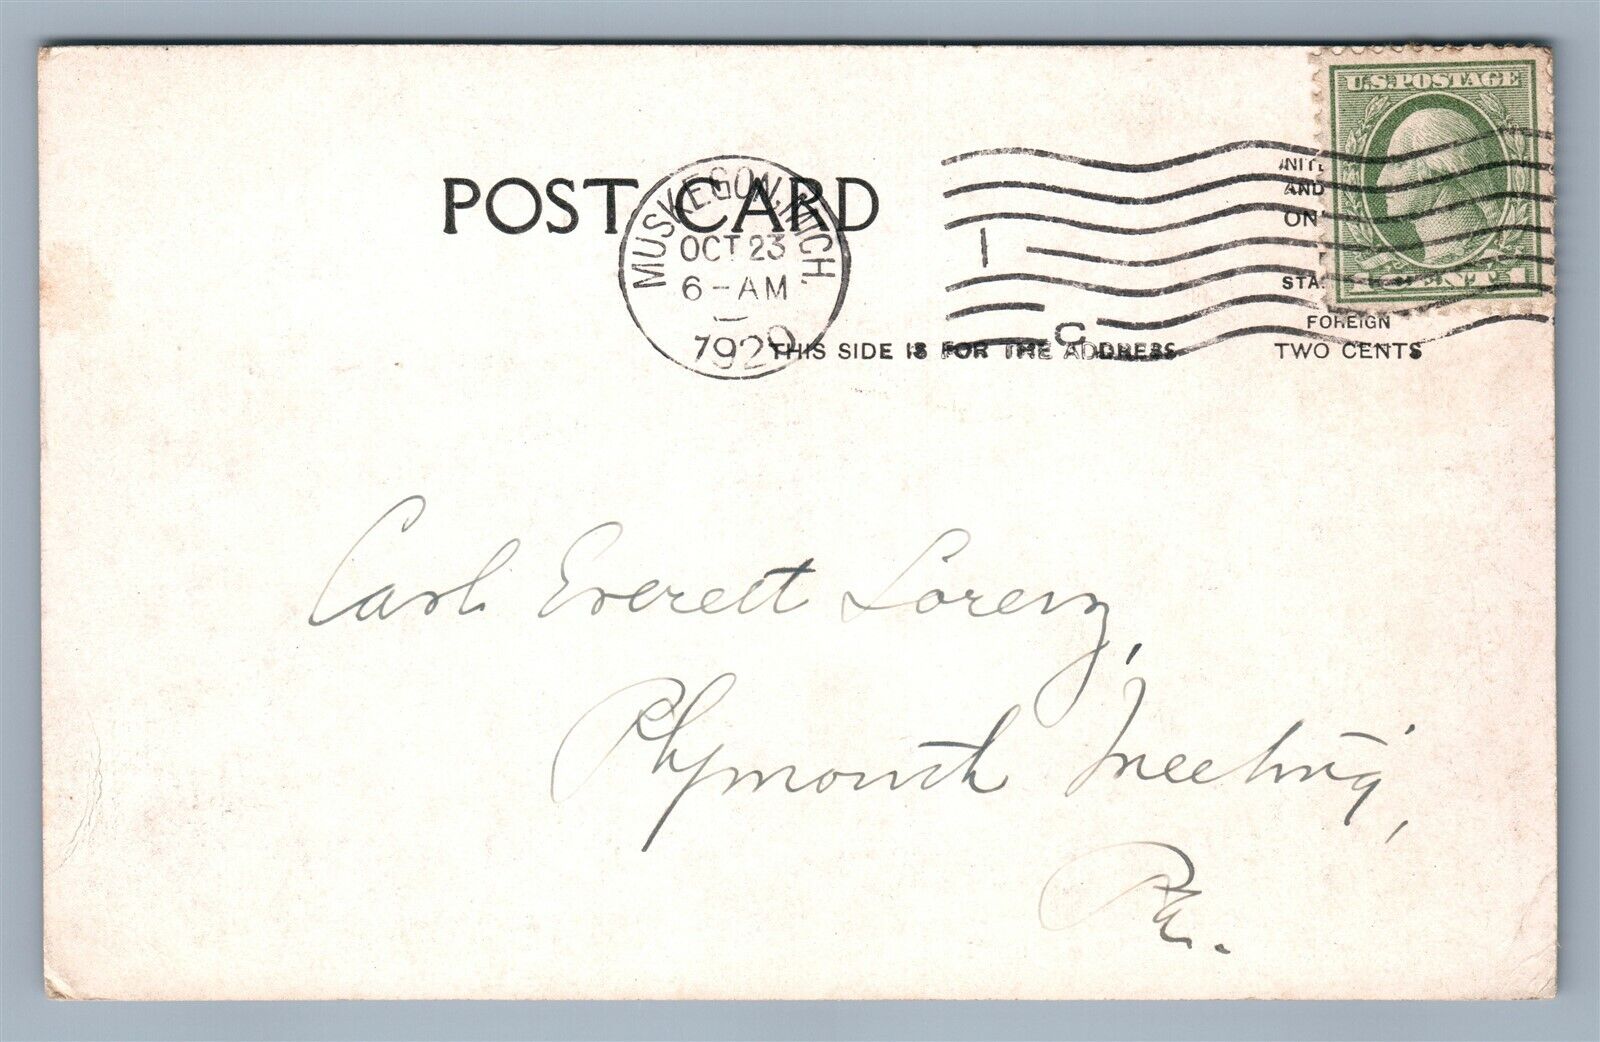 U.S. POSTAGE
INITE
POST CARD
AND
MUSKEGON, MICH.
OCT 23
6-AM
1920
ON
1
STA
FOREIGN
C
THIS SIDE IS FOR THE ADDRESS
TWO CENTS
Carl Everett Lorenz,
Plymouth Meeting,
Pa.